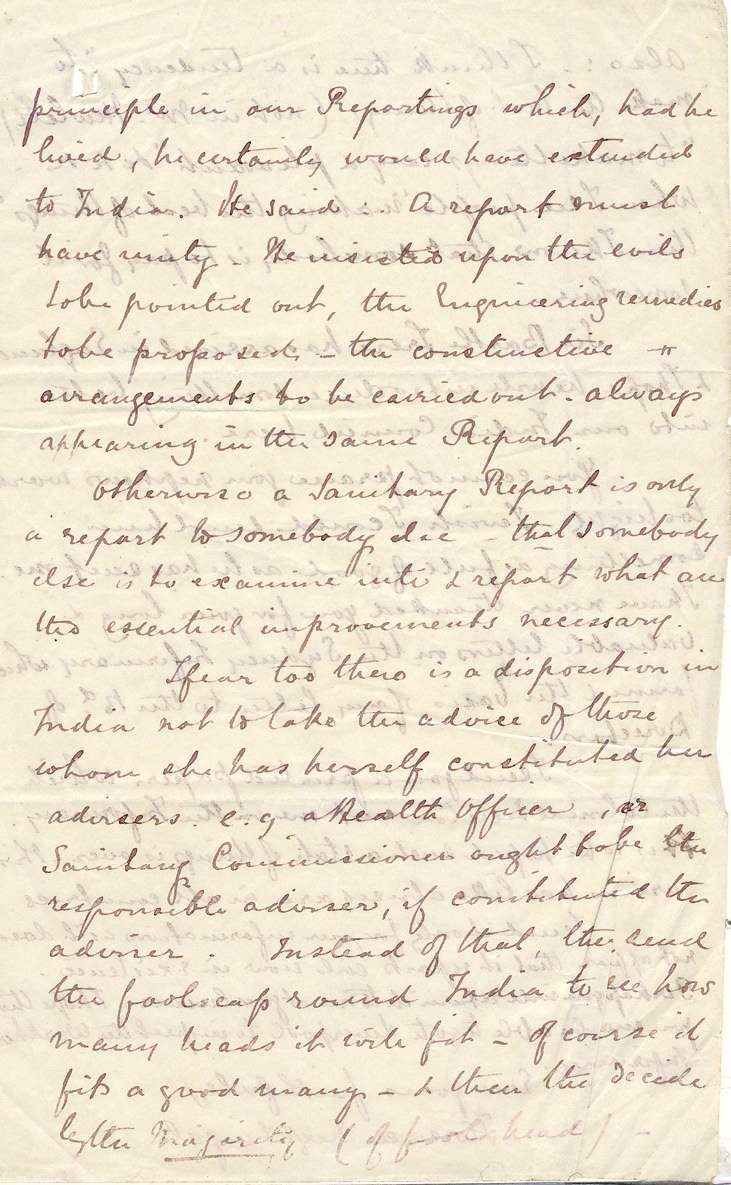 principle in our Reportings which, had he
lived, he certainly would have extended
to India. He said: A report must
have unity - He insisted upon the evils
to be pointed out, the Engineering remedies
to be proposed, - the constructive
arrangements to be carried out - always
appearing in the same Report.
Otherwise a Sanitary Report is only
a report to somebody else - that somebody
else is to examine into & report what are
the essential improvements necessary.
I fear too there is a disposition in
India not to take the advice of those
whom she has herself constituted her
advisers. e.g a Health Officer, or
Sanitary Commissioner ought to be the
responsible adviser, if constituted the
adviser. Instead of that, they send
the foolscap round India to see how
many heads it will fit - of course it
fits a good many - & then they decide
by the majority (of fools' head) -